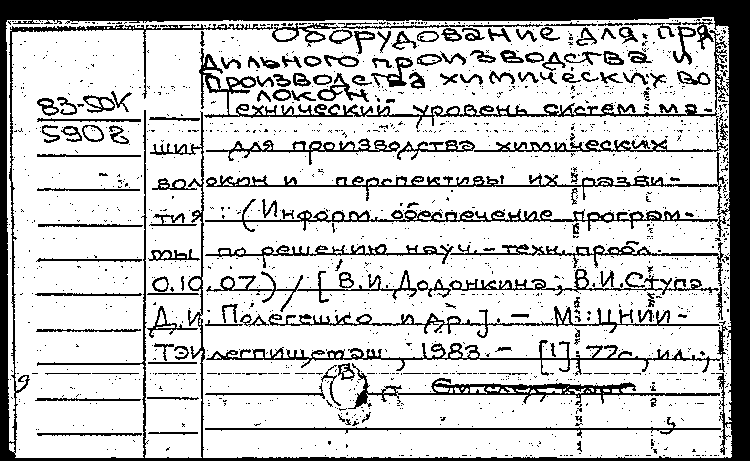 Оборудование для пря
дильного производства и
производства химических во
локон.
83-50К
5908
Технический уровень систем ма-
шин для производства химических
волокон и перспективы их разви-
тия : (Информ. обеспечение програм-
мы по решению науч.-техн. пробл.
0.10.07.) / [В.И. Додонкина, В.И. Ступа,
Д.И. Полегешко и др.]. - М.: ЦНИИ-
ТЭИлегпищемаш, 1983. - [1], 77с., ил.;
См. след. карт.